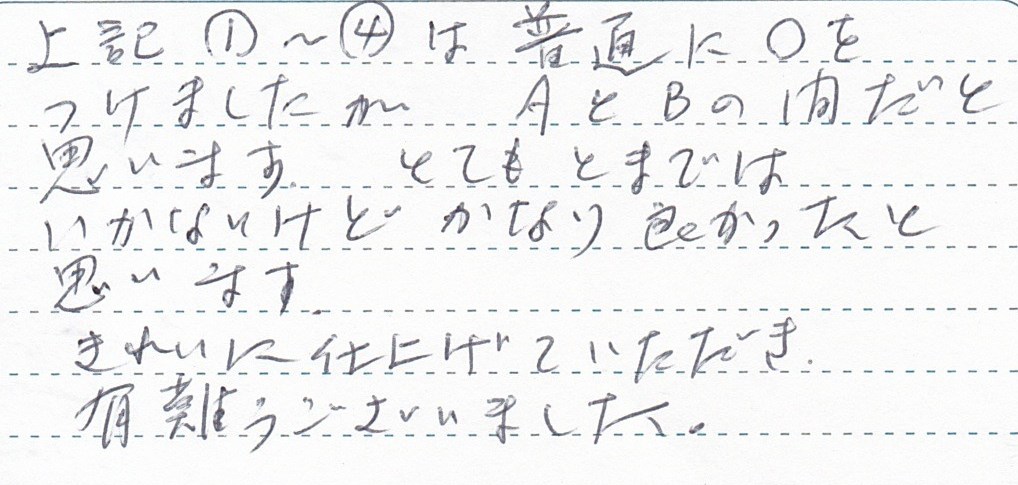 上記 ①～④ は 普通に ○を
つけましたが AとBの間だと
思います。 とてもとまでは
いかないけど かなり良かったと
思います.
きれいに仕上げていただき.
有難うございました。